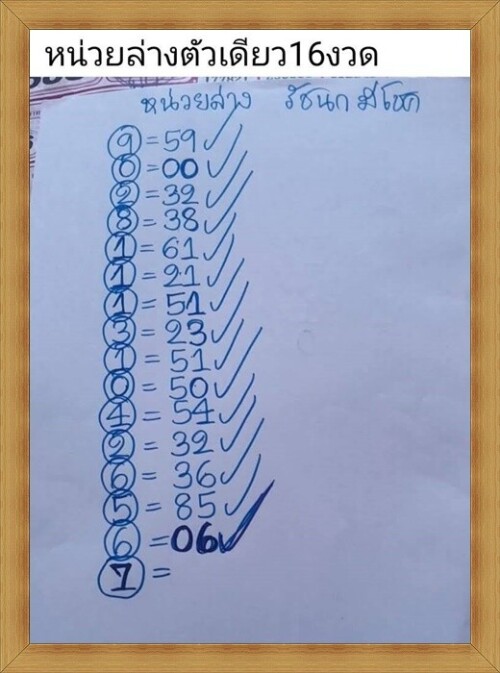 หน่วยล่างตัวเดียว16งวด
หน่วยล่าง รัชนก มีโชค
9 = 59
0 = 00
2 = 32
8 = 38
1 = 61
1 = 21
1 = 51
3 = 23
1 = 51
0 = 50
4 = 54
2 = 32
6 = 36
5 = 85
6 = 06
1 =